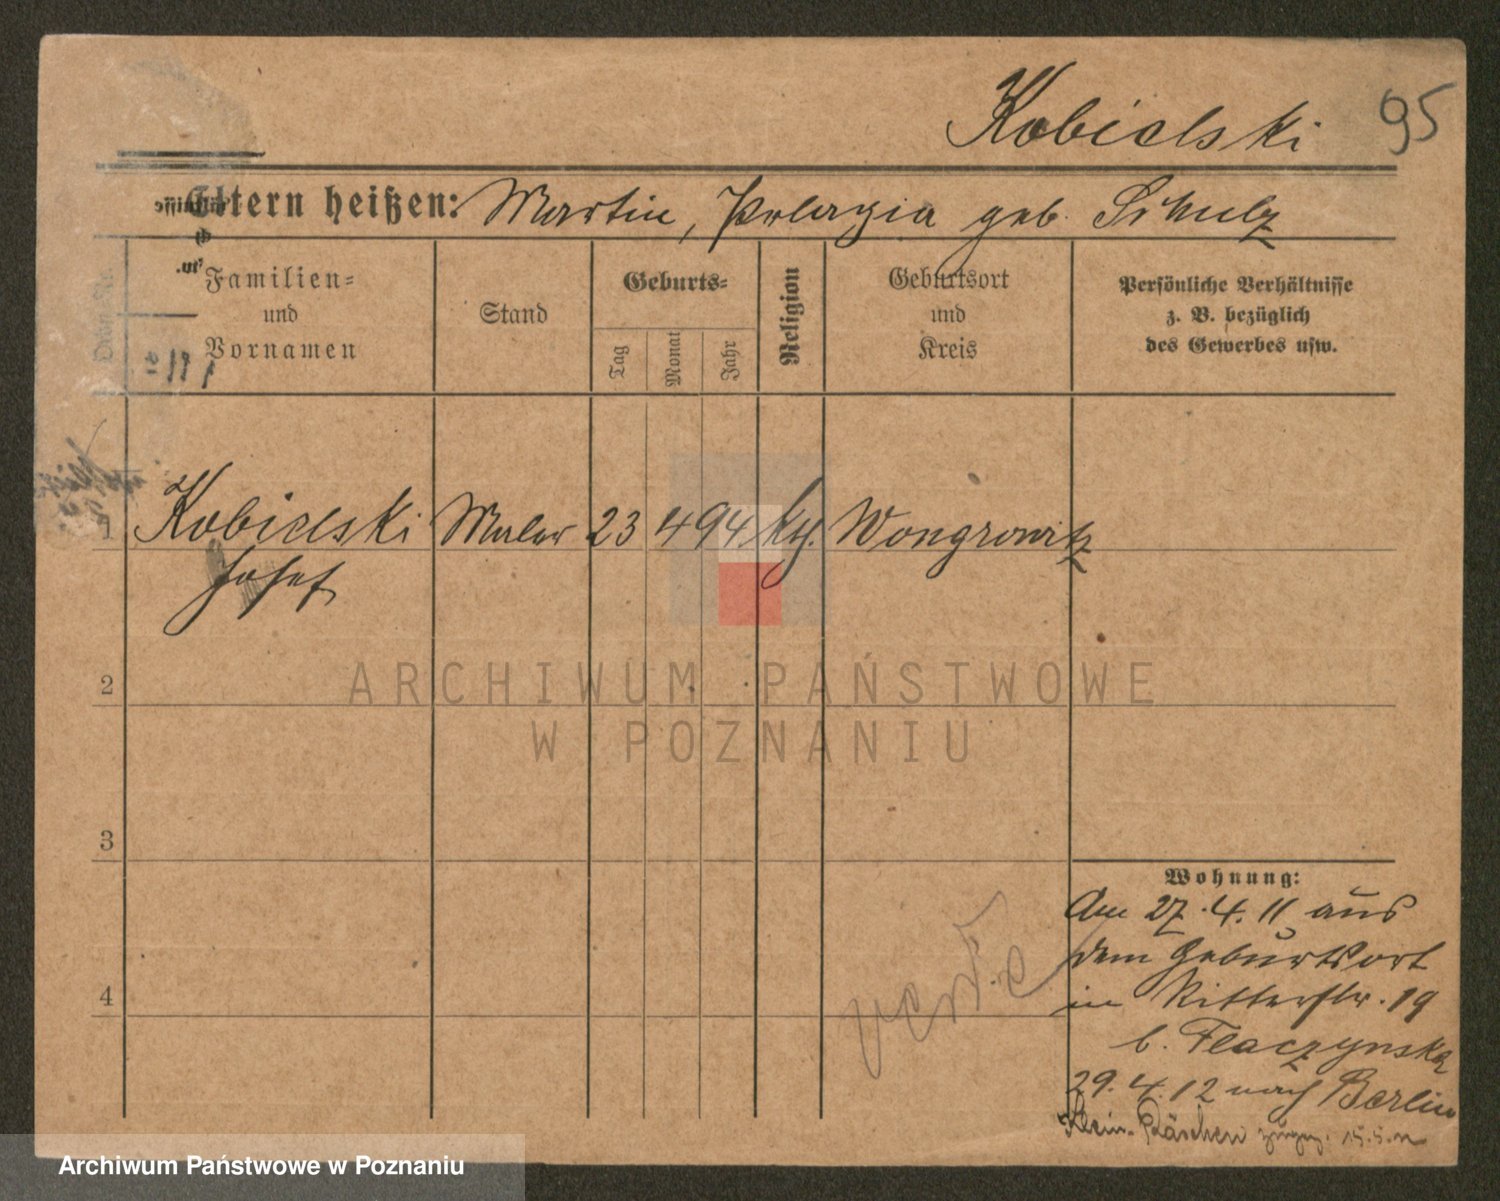 Kobielski 95
Eltern heißen: Martin, Pelagia geb. Schulz
Familien=
und
Vornamen
Stand
Geburts=
Tag
Monat
Jahr
Religion
Geburtsort
und
Kreis
Persönliche Verhältnisse
z. B. bezüglich
des Gewerbes usw.
1 Kobielski Maler 23 4 94 kth. Wongrowitz
Josef
2
3
4
Wohnung:
Am 27.4.11 aus
dem Geburtsort
in Ritterstr. 19
b. Flaczynska
29.4.12 nach Berlin
Klein-Räschen 15.5.
ARCHIWUM PAŃSTWOWE
W POZNANIU
Archiwum Państwowe w Poznaniu